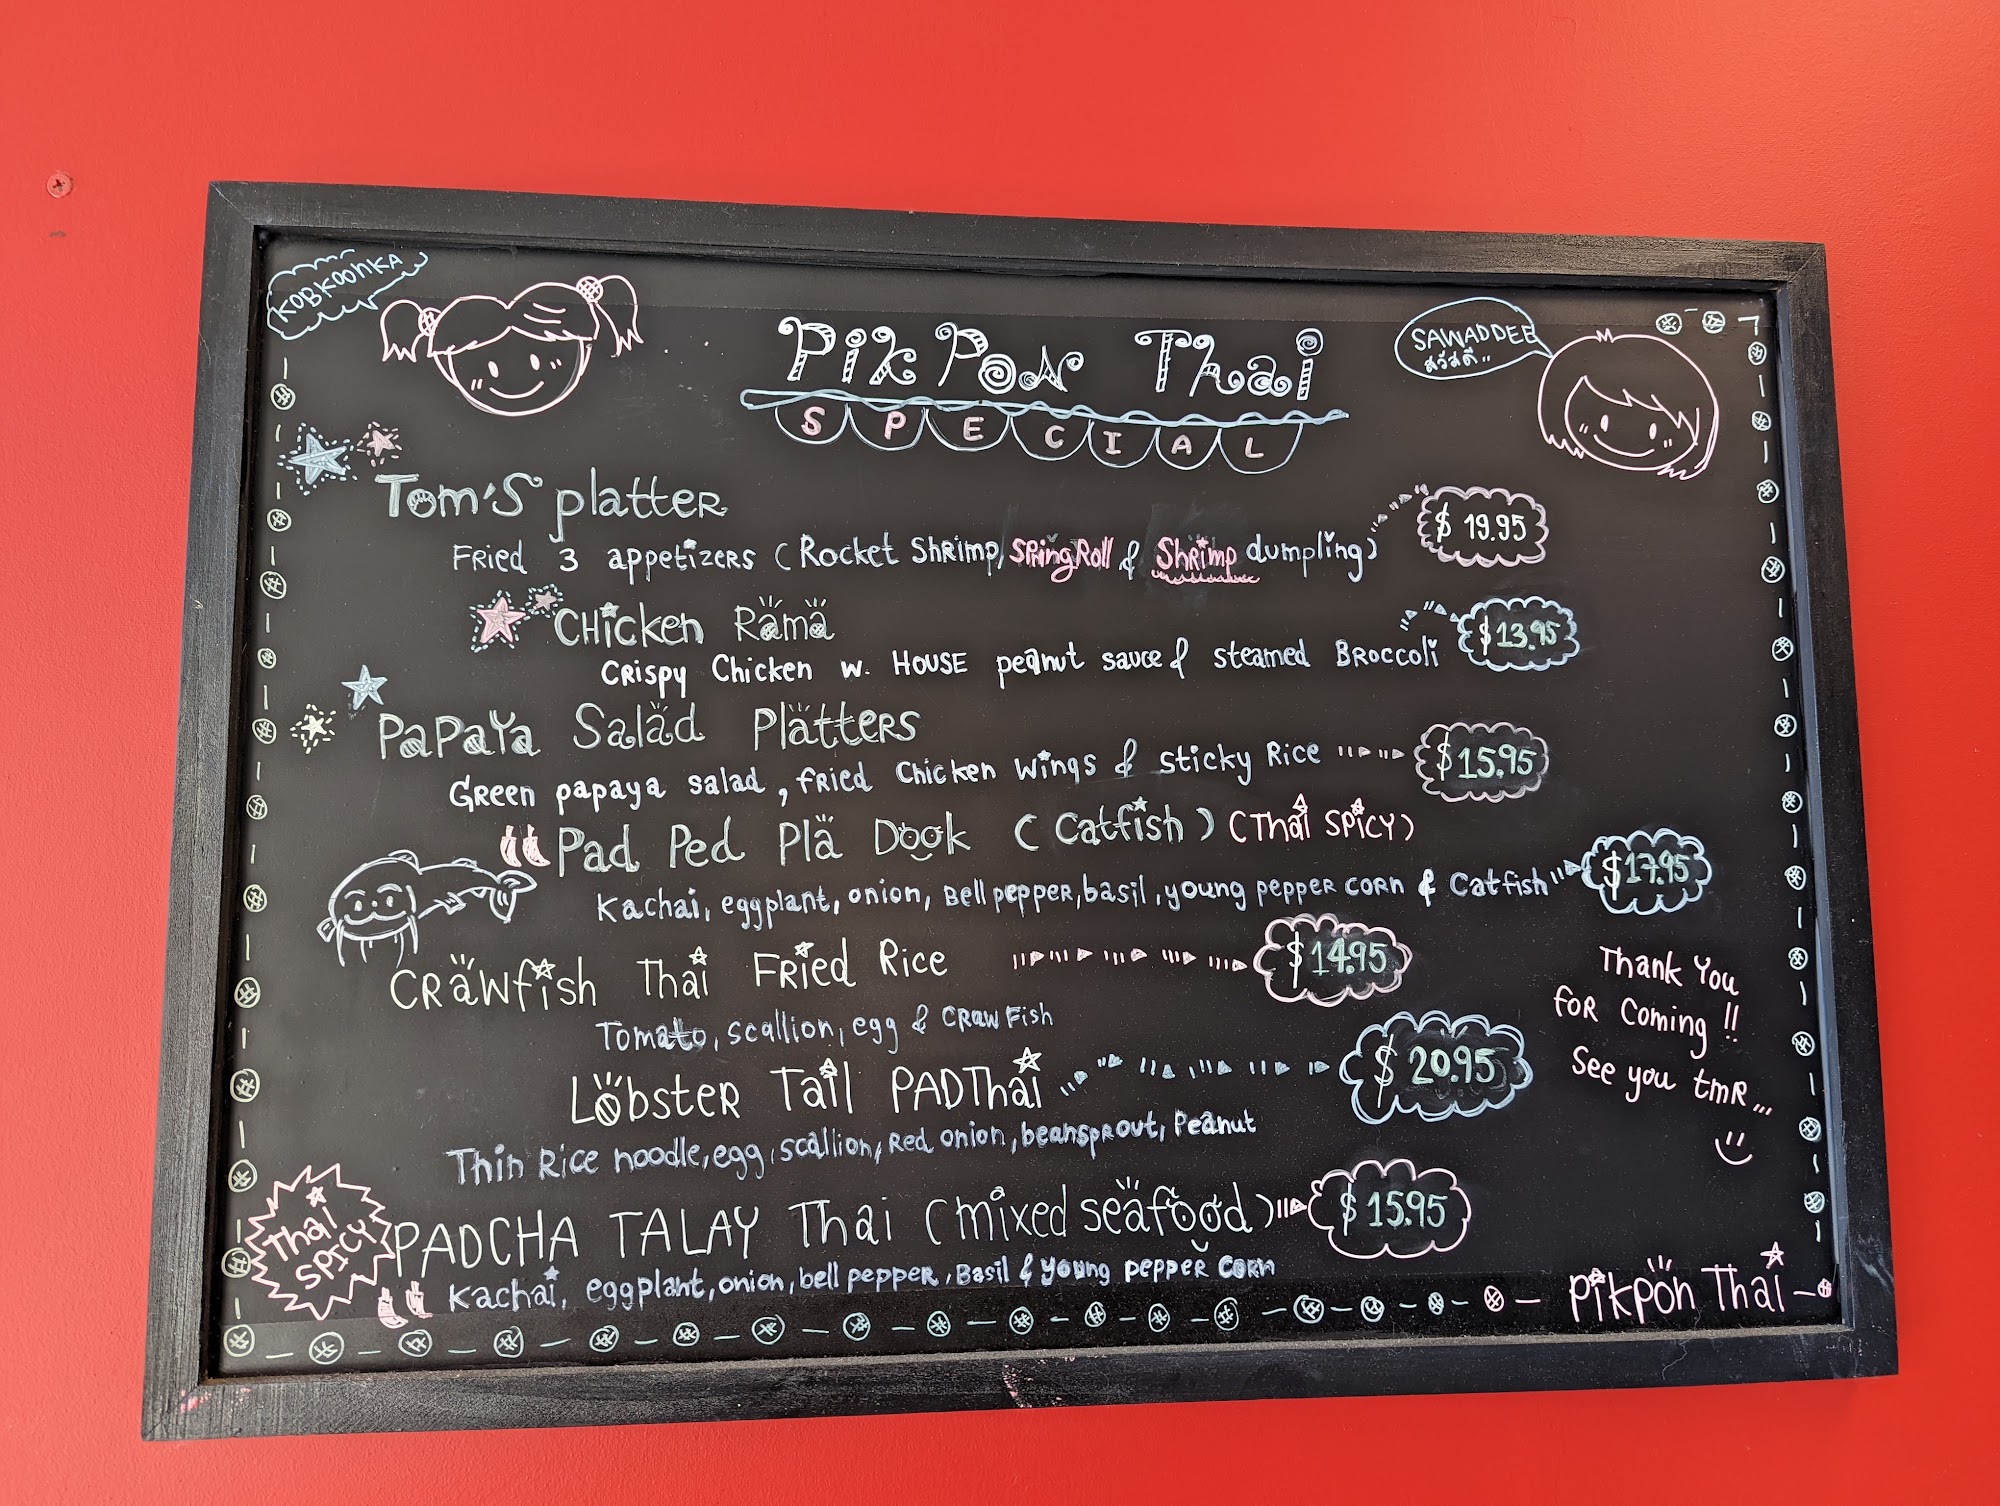 KOBKOONKA
PikPon Thai
SPECIAL
SAWADDEE
สวัสดี..
Tom's platter
$ 19.95
Fried 3 appetizers (Rocket Shrimp, SpringRoll & Shrimp dumpling)
Chicken Rama
$13.95
Crispy Chicken w. House peanut sauce & steamed Broccoli
Papaya Salad Platters
Green papaya salad, fried Chicken wings & sticky Rice
$15.95
Pad Ped Pla Dook (Catfish) (Thai SPICY)
Kachai, eggplant, onion, Bell pepper, basil, young pepper corn & Catfish
$17.95
Crawfish Thai Fried Rice
$14.95
Tomato, scallion, egg & Craw Fish
Lobster Tail PADThai
$ 20.95
Thin Rice noodle, egg, scallion, Red onion, beansprout, Peanut
Thai
SPICY
PADCHA TALAY Thai (mixed seafood)
$15.95
Kachai, eggplant, onion, bell pepper, Basil & young pepper corn
Thank You
for Coming !!
See you tmR...
PikPon Thai